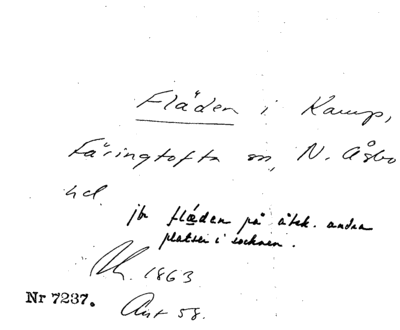 Fläden i Kamp,
Färingtofta sn, N. Åsbo
hd.
jfr fläden på åtsk. andra
platser i socknen.
1863
Nr 7237. Ant 58.